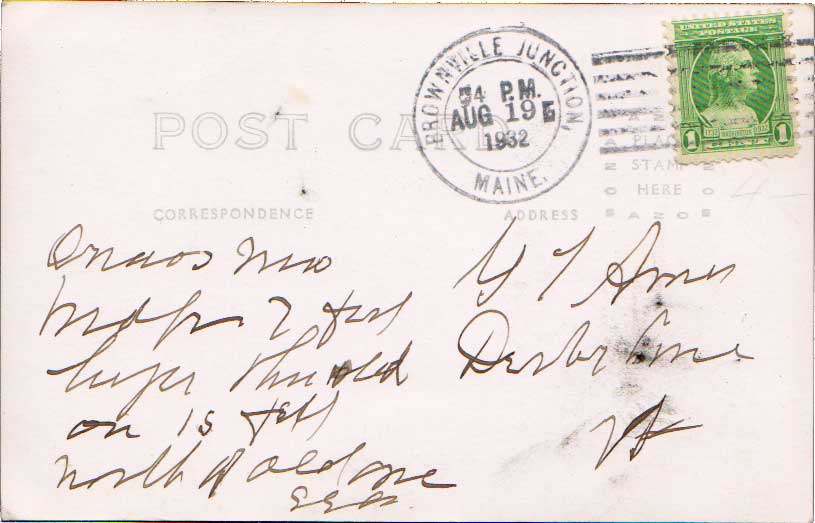 POST CARD
BROWNVILLE JUNCTION,
P.M.
AUG 19
1932
MAINE.
UNITED STATES
POSTAGE
1 1732 WASHINGTON 1932 1
PLACE
STAMP
HERE
AZO
CORRESPONDENCE
ADDRESS
Onaos new
bridge 7 feet
higher than old
on 15 feet
north of old one
Ames
Derby Line
Vt